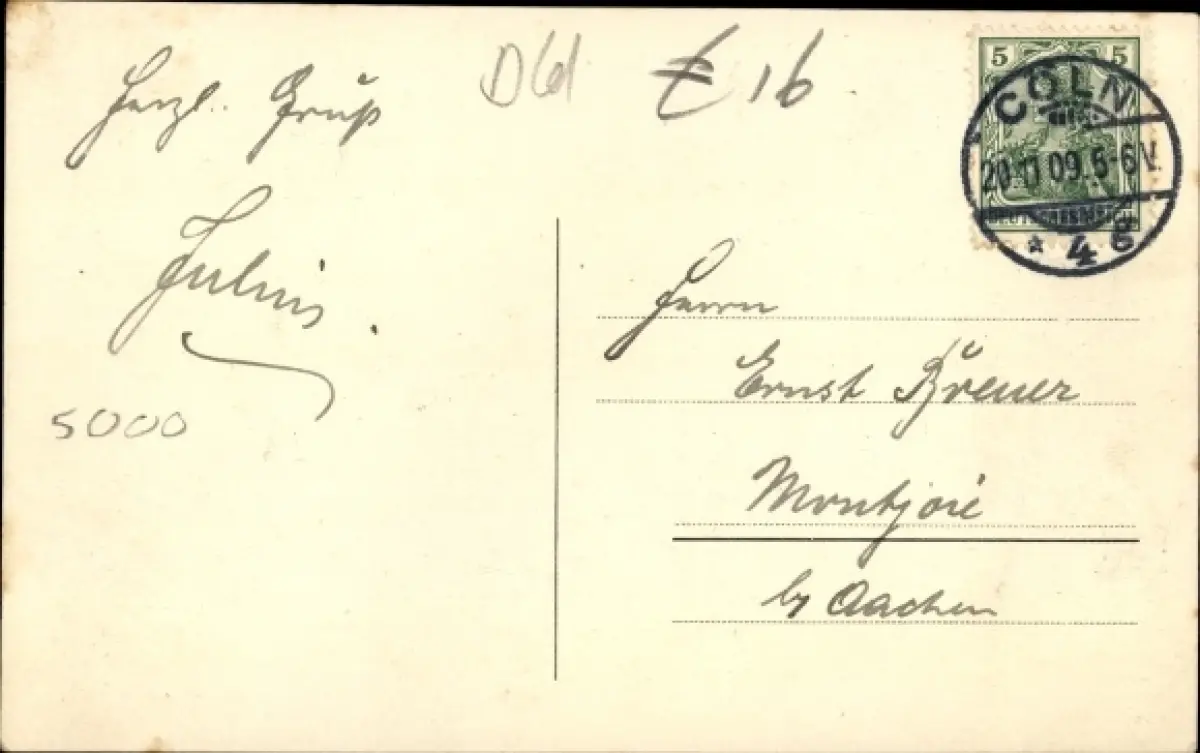 Herzl. Gruß
Julius.
5000
€ 16
5 5
CÖLN
20.11.09.5-6V.
DEUTSCHES REICH
* 4g
Herrn
Ernst Breuer
Montjoie
by Aachen